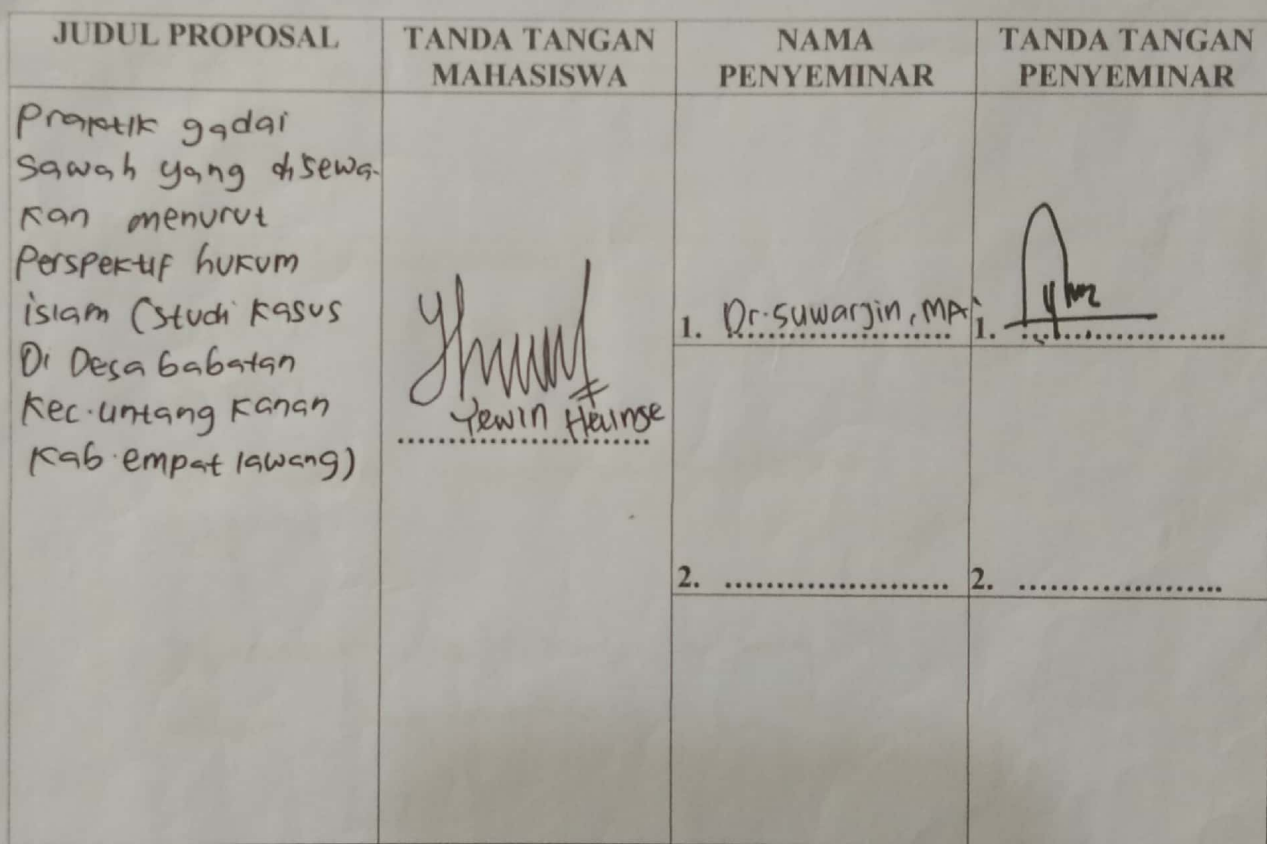 JUDUL PROPOSAL
TANDA TANGAN
MAHASISWA
NAMA
PENYEMINAR
TANDA TANGAN
PENYEMINAR
Praktik gadai
sawah yang disewa-
kan menurut
Perspektif hukum
islam (studi kasus
Di Desa babatan
Kec. untang kanan
Kab. empat lawang)
Yewin Helinse
1. Dr. Suwarjin, MA
1.
2.
2.